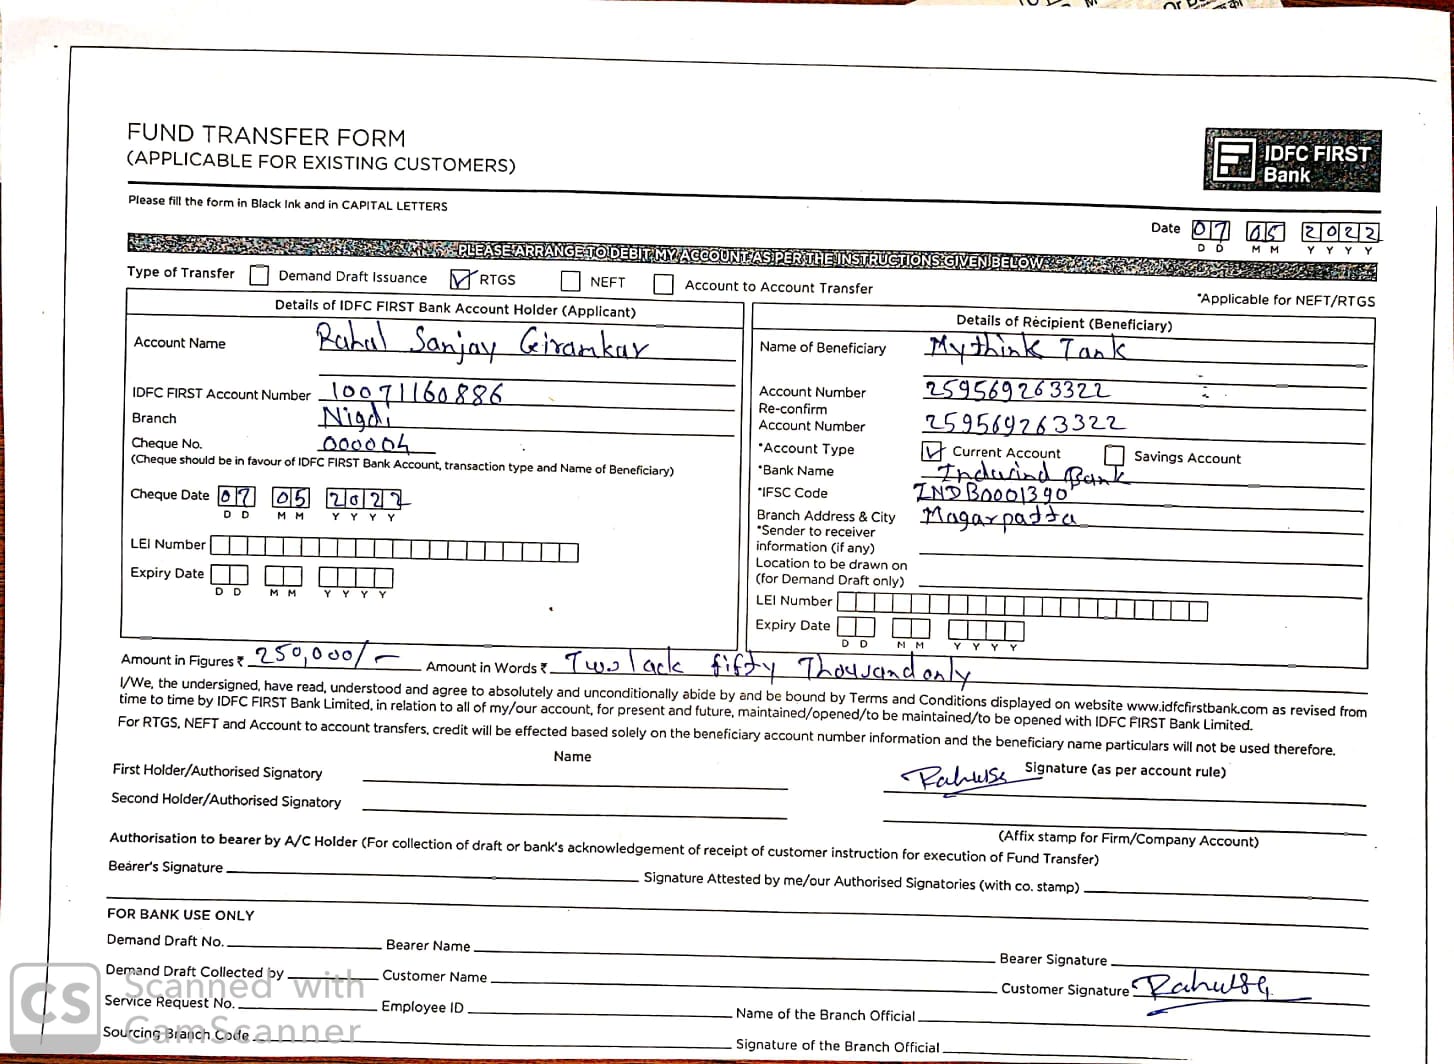 FUND TRANSFER FORM
(APPLICABLE FOR EXISTING CUSTOMERS)
IDFC FIRST
Bank
Please fill the form in Black Ink and in CAPITAL LETTERS
Date 07 05 2022
D D M M Y Y Y Y
PLEASE ARRANGE TO DEBIT MY ACCOUNT AS PER THE INSTRUCTIONS GIVEN BELOW
Type of Transfer Demand Draft Issuance RTGS NEFT Account to Account Transfer
*Applicable for NEFT/RTGS
Details of IDFC FIRST Bank Account Holder (Applicant)
Account Name Rahul Sanjay Giramkar
IDFC FIRST Account Number 10071160886
Branch Nigdi
Cheque No. 000004
(Cheque should be in favour of IDFC FIRST Bank Account, transaction type and Name of Beneficiary)
Cheque Date 07 05 2022
D D M M Y Y Y Y
LEI Number
Expiry Date
D D M M Y Y Y Y
Details of Recipient (Beneficiary)
Name of Beneficiary Mythink Tank
Account Number 259569263322
Re-confirm
Account Number 259569263322
*Account Type Current Account Savings Account
*Bank Name Indusind Bank
*IFSC Code INDB0001390
Branch Address & City Magarpatta
*Sender to receiver
information (if any)
Location to be drawn on
(for Demand Draft only)
LEI Number
Expiry Date
D D M M Y Y Y Y
Amount in Figures ₹ 250,000/- Amount in Words ₹ Two lack fifty Thousand only
I/We, the undersigned, have read, understood and agree to absolutely and unconditionally abide by and be bound by Terms and Conditions displayed on website www.idfcfirstbank.com as revised from
time to time by IDFC FIRST Bank Limited, in relation to all of my/our account, for present and future, maintained/opened/to be maintained/to be opened with IDFC FIRST Bank Limited.
For RTGS, NEFT and Account to account transfers, credit will be effected based solely on the beneficiary account number information and the beneficiary name particulars will not be used therefore.
Name
First Holder/Authorised Signatory Signature (as per account rule)
Second Holder/Authorised Signatory
(Affix stamp for Firm/Company Account)
Authorisation to bearer by A/C Holder (For collection of draft or bank's acknowledgement of receipt of customer instruction for execution of Fund Transfer)
Bearer's Signature Signature Attested by me/our Authorised Signatories (with co. stamp)
FOR BANK USE ONLY
Demand Draft No. Bearer Name Bearer Signature
Demand Draft Collected by Customer Name Customer Signature
Service Request No. Employee ID Name of the Branch Official
Sourcing Branch Code Signature of the Branch Official
CS Scanned with
CamScanner